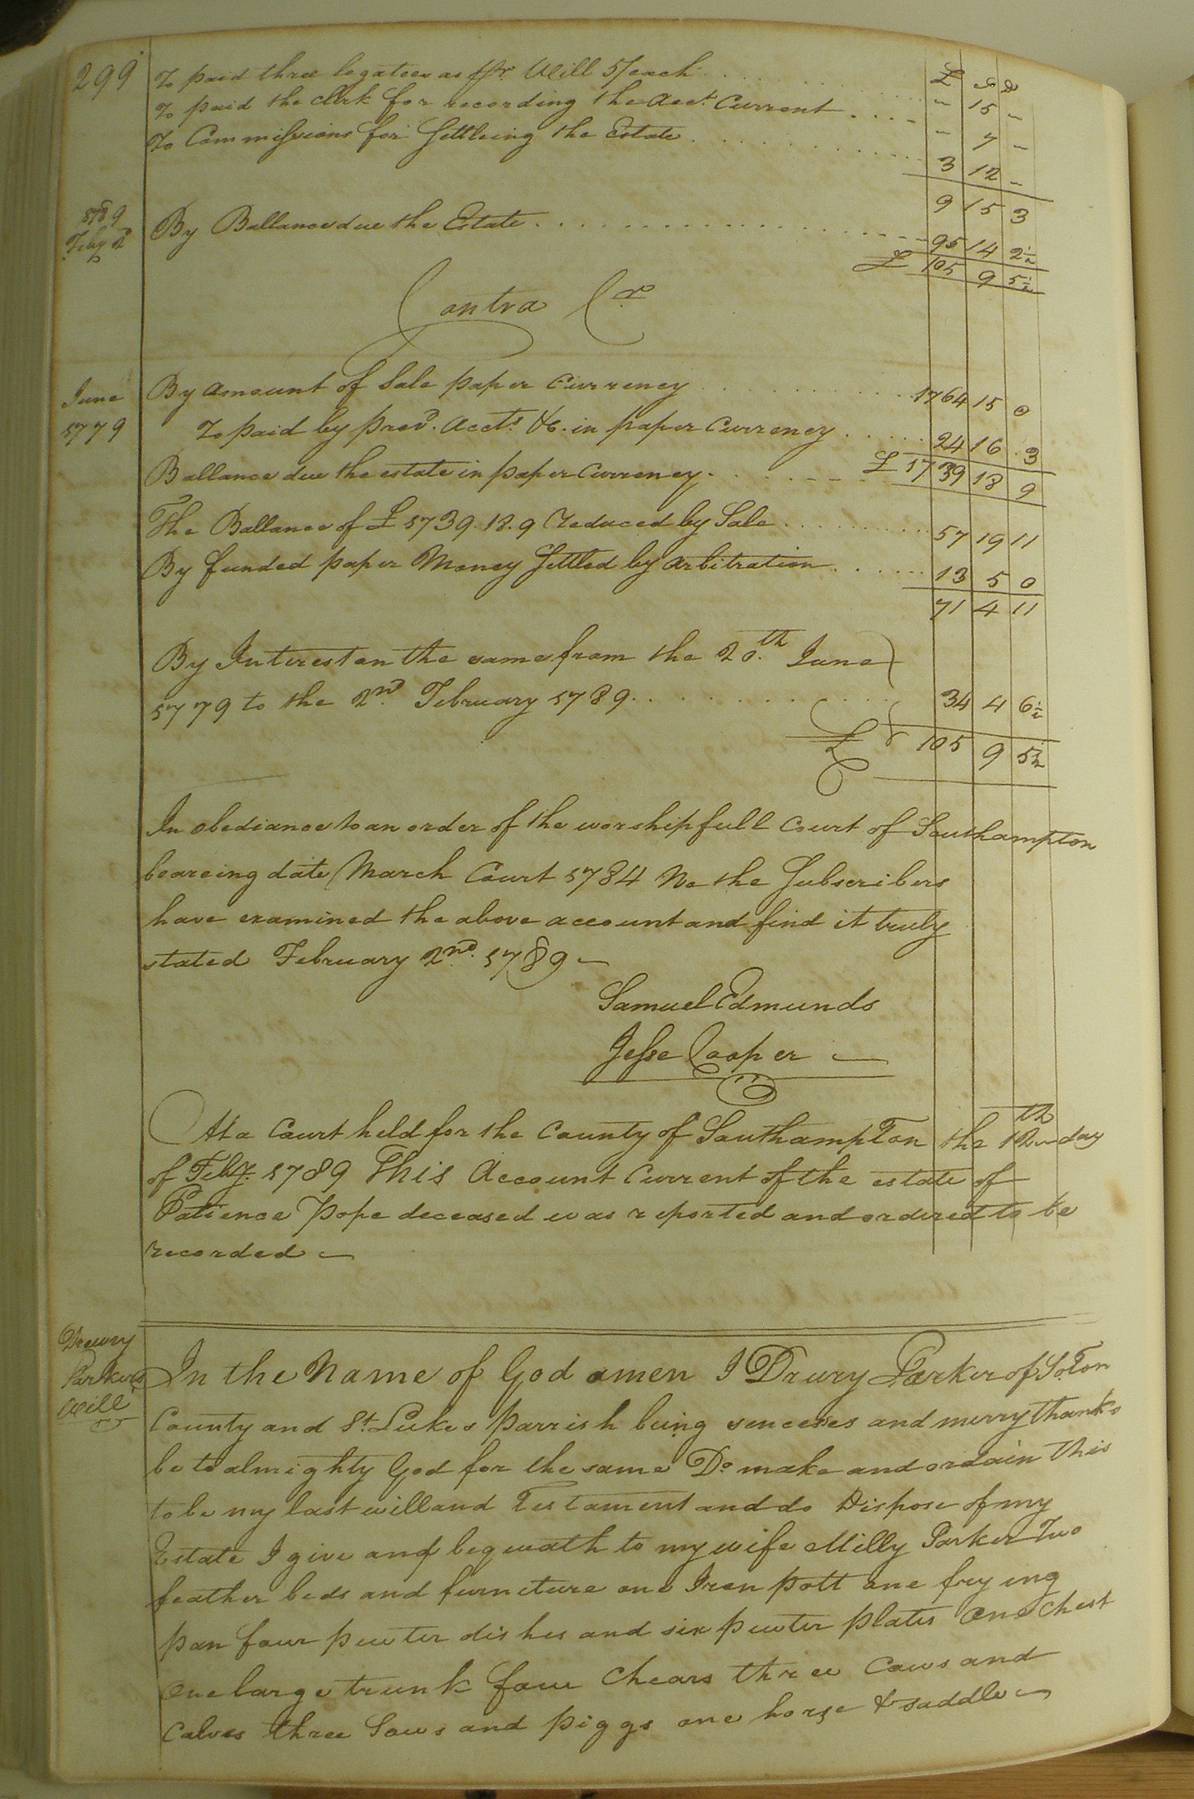 299
To paid three legatees as pr. Will 5/ each - 15 -
£ s d
To paid the Clerk for recording the Acct. Current - 7 -
To Commissions for Settleing the Estate 3 12 -
9 15 3
1789
Feby 2d
By Ballance due the Estate 95 14 2½
£ 105 9 5½
Contra Cr
June
1779
By amount of Sale paper Currency 1764 15 0
To paid by prov'd. Accts. &c. in paper Currency 24 16 3
Ballance due the estate in paper Currency £ 1739 18 9
The Ballance of £ 1739.18.9 reduced by Sale 57 19 11
By funded paper Money Settled by Arbitration 13 5 0
71 4 11
By Interest on the same from the 20.th June
1779 to the 2nd. February 1789 34 4 6½
£ 105 9 5½
In obediance to an order of the worshipfull Court of Southampton
beareing date March Court 1784 We the Subscribers
have examined the above account and find it truly
stated February 2nd. 1789 —
Samuel Edmunds
Jesse Cooper —
At a Court held for the County of Southampton the 12th day
of Feby. 1789 This Account Current of the estate of
Patience Pope deceased was reported and ordered to be
recorded —
Drewry
Parkers
Will
In the Name of God amen I Drury Parker of So.Ton
County and St. Lukes Parrish being senceses and merry thanks
be to almighty God for the same Do make and ordain this
to be my last will and Testament and do Dispose of my
Estate I give and beqweath to my wife Milly Parker Two
feather beds and furniture one Iren pott one frying
pan four pewter dishes and six pewter plates One Chest
one large trunk four Chears three Cows and
Calves three Sows and piggs one horse & saddle —